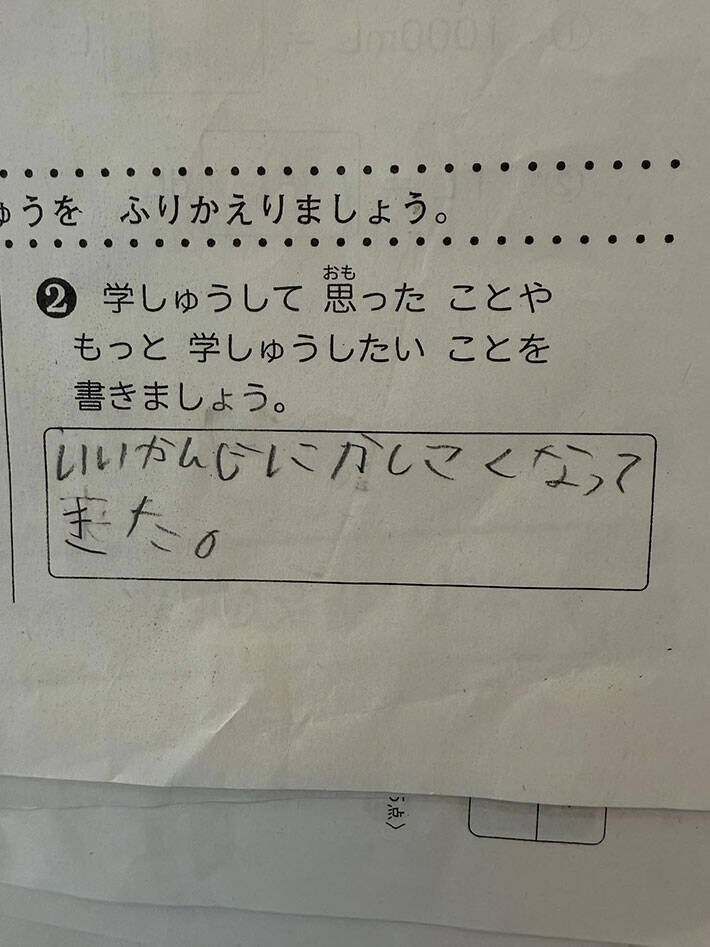 1000mL =
ゅうを ふりかえりましょう。
おも
❷ 学しゅうして 思った ことや
もっと 学しゅうしたい ことを
書きましょう。
いいかんじにかしこくなって
きた。
5点〉